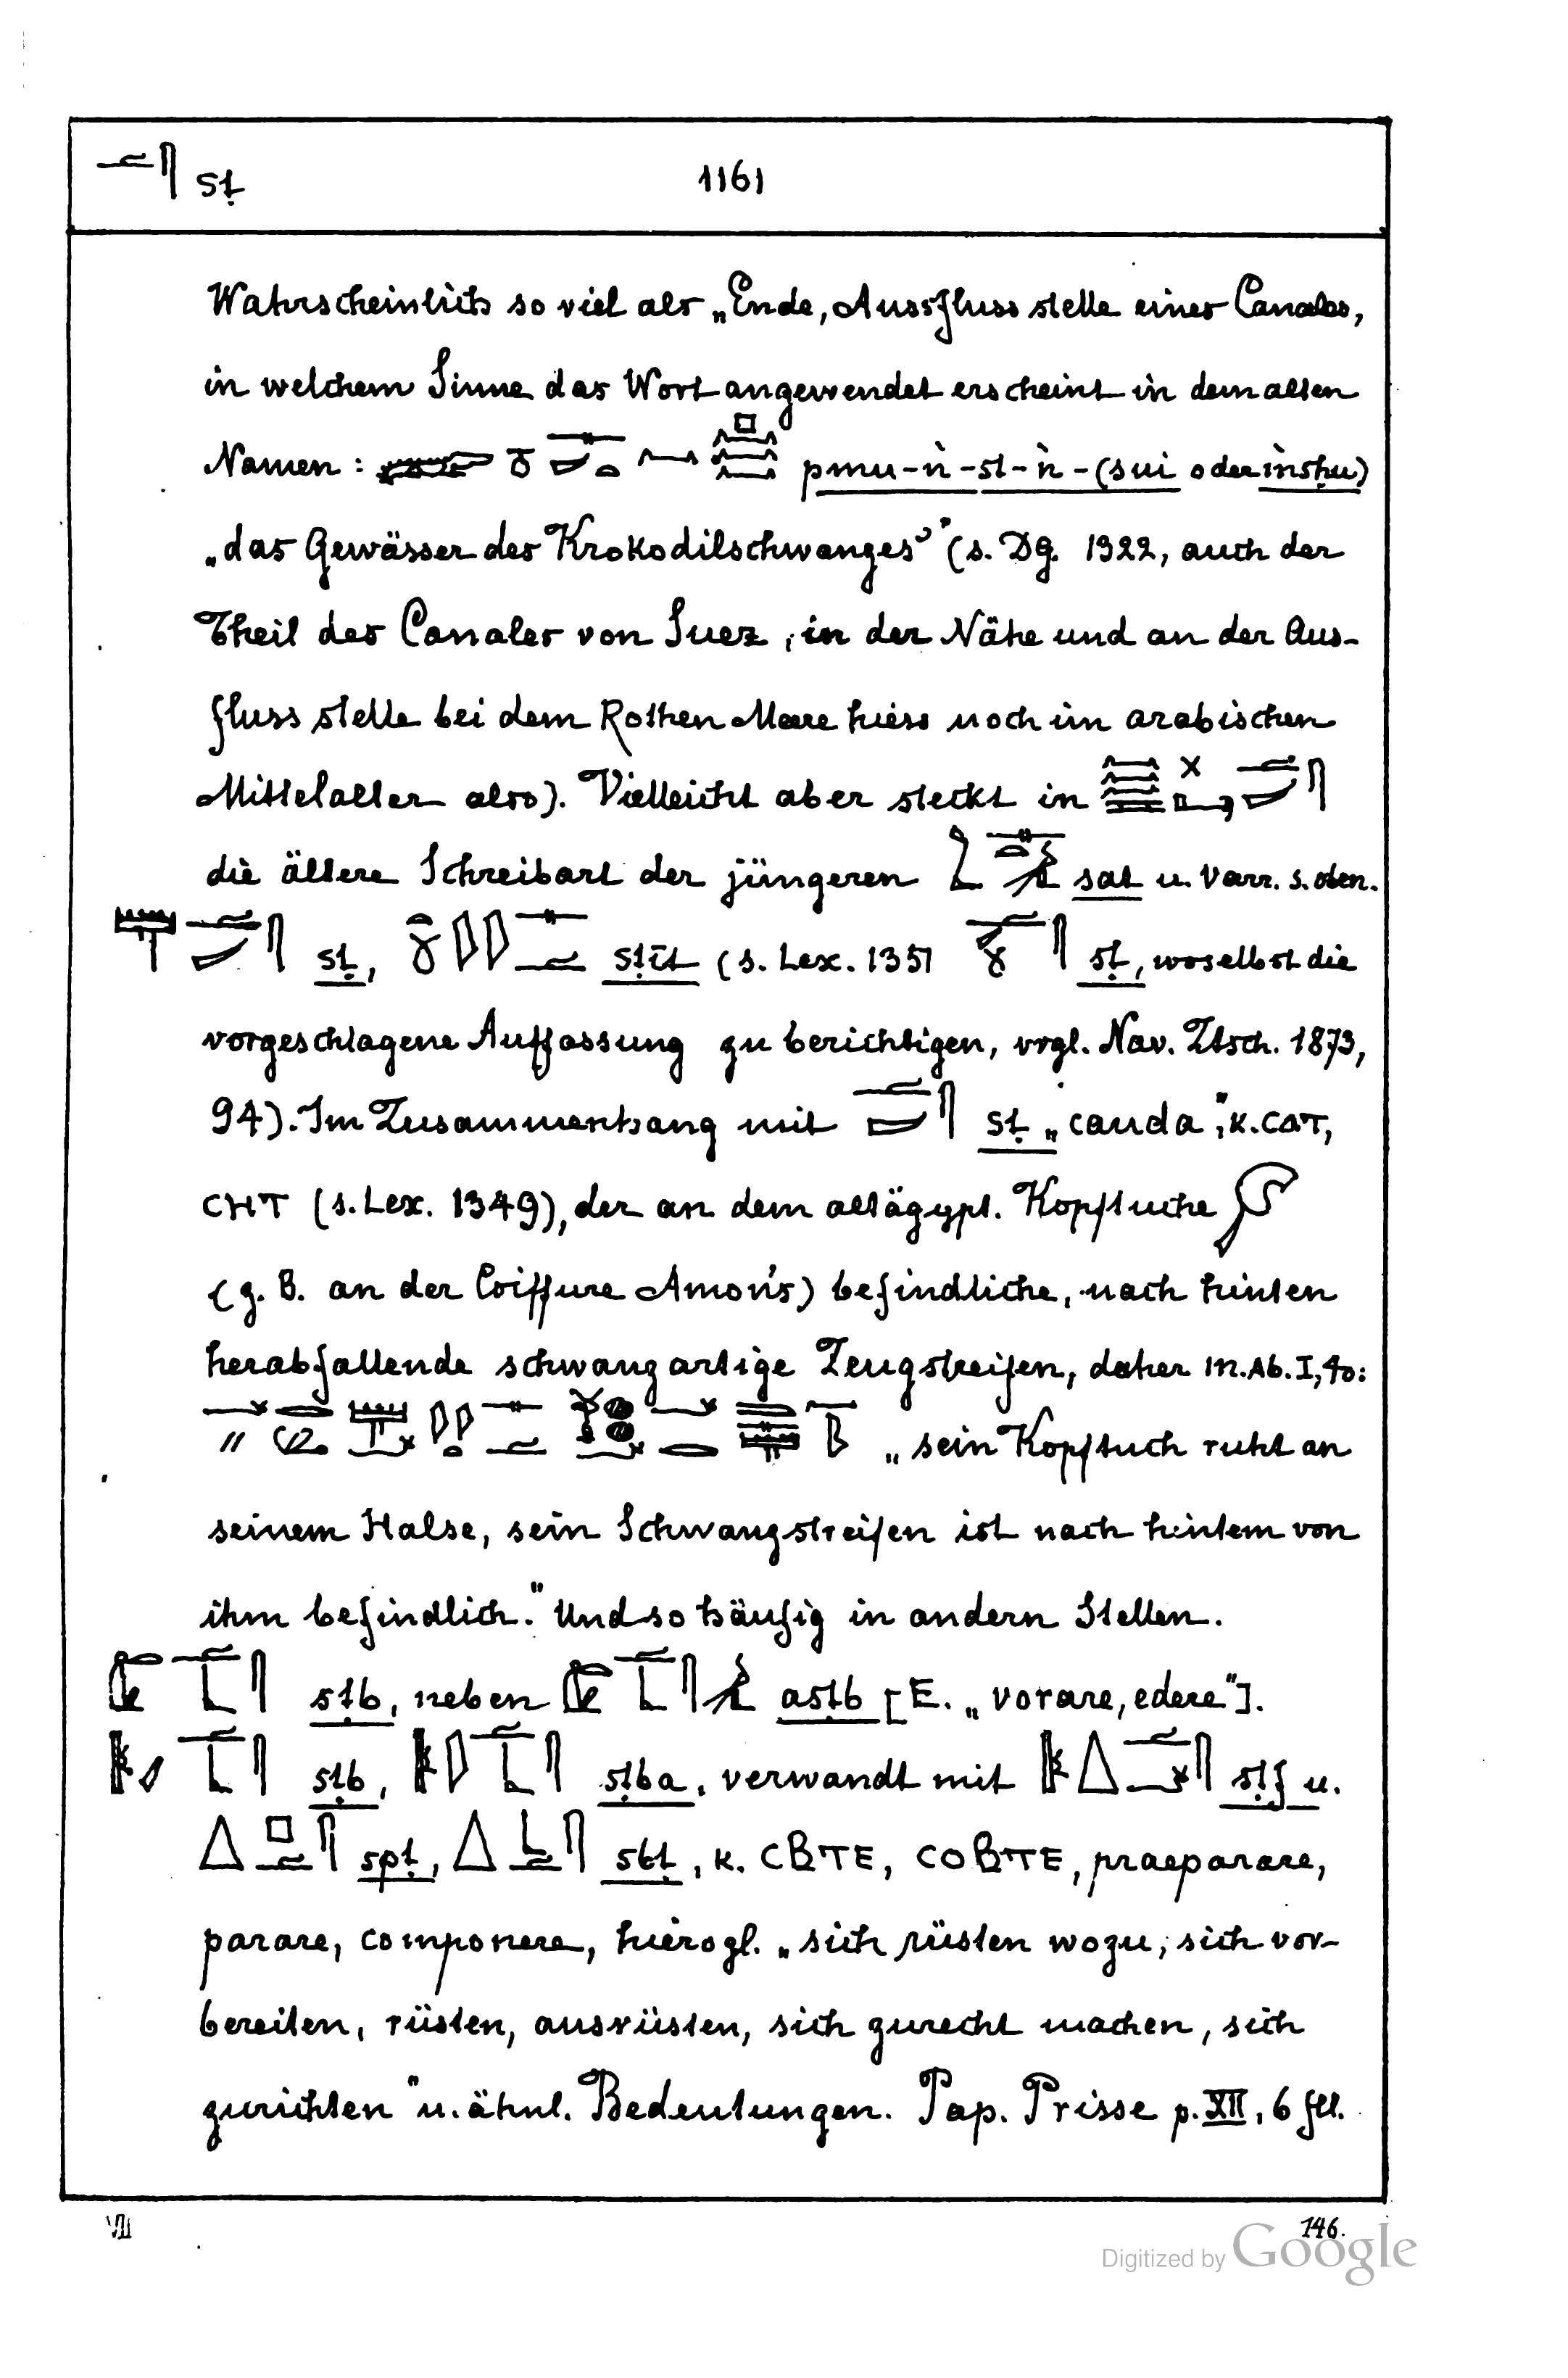 sṭ 1161
Wahrscheinlich so viel als „Ende, Aussflussstelle eines Canales,
in welchem Sinne das Wort angewendet erscheint in dem alten
Namen : pmu-ǹ-st-ǹ-(sui oder ìnsḥu)
„das Gewässer des Krokodilschwanzes" (s. DG. 1322, auch der
Theil des Canales von Suez, in der Nähe und an der Aus-
flussstelle bei dem Rothen Meere hiess noch im arabischen
Mittelalter also). Vielleicht aber steckt in
die ältere Schreibart der jüngeren sat u. Varr. s. oben.
sṭ, stit (s. Lex. 1351 sṭ, woselbst die
vorgeschlagene Auffassung zu berichtigen, vrgl. Nav. Ztsch. 1873,
94). Im Zusammenhang mit sṭ „cauda", K. CAT,
CHT (s. Lex. 1349), der an dem altägypt. Kopftuche
(z. B. an der Coiffure Amon's) befindliche, nach hinten
herabfallende schwanzartige Zeugstreifen, daher M. Ab. I, 40:
„sein Kopftuch ruht an
seinem Halse, sein Schwanzstreifen ist nach hintem von
ihm befindlich." Und so häufig in andern Stellen.
sṭb, neben asṭb [E. „vorare, edere"].
sṭb, sṭba, verwandt mit sṭf u.
spṭ, sbṭ, K. CBTE, COBTE, praeparare,
parare, componere, hierogl. „sich rüsten wozu, sich vor-
bereiten, rüsten, ausrüsten, sich zurecht machen, sich
zurichten" u. ähnl. Bedeutungen. Pap. Prisse p. XII, 6 fll.
VII 146.
Digitized by Google